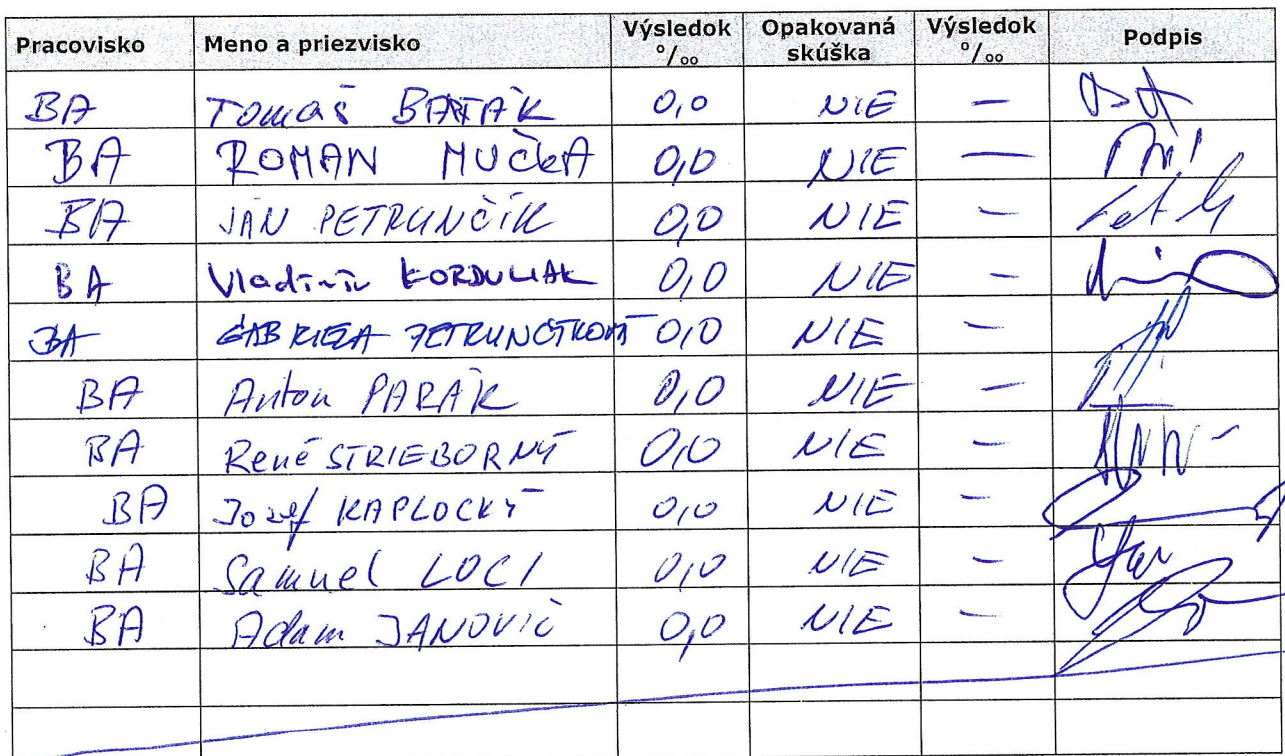 Pracovisko Meno a priezvisko Výsledok °/oo Opakovaná skúška Výsledok °/oo Podpis
BA Tomáš 0,0 NIE —
BA ROMAN MUČKA 0,0 NIE —
BA JÁN PETRUNČÍK 0,0 NIE —
BA Vladimír KORDULIAK 0,0 NIE —
BA GABRIELA PETRUNČÍKOVÁ 0,0 NIE —
BA Anton PARÁK 0,0 NIE —
BA René STRIEBORNÝ 0,0 NIE —
BA Jozef KAPLOCKÝ 0,0 NIE —
BA Samuel LOCI 0,0 NIE —
BA Adam JANOVIČ 0,0 NIE —